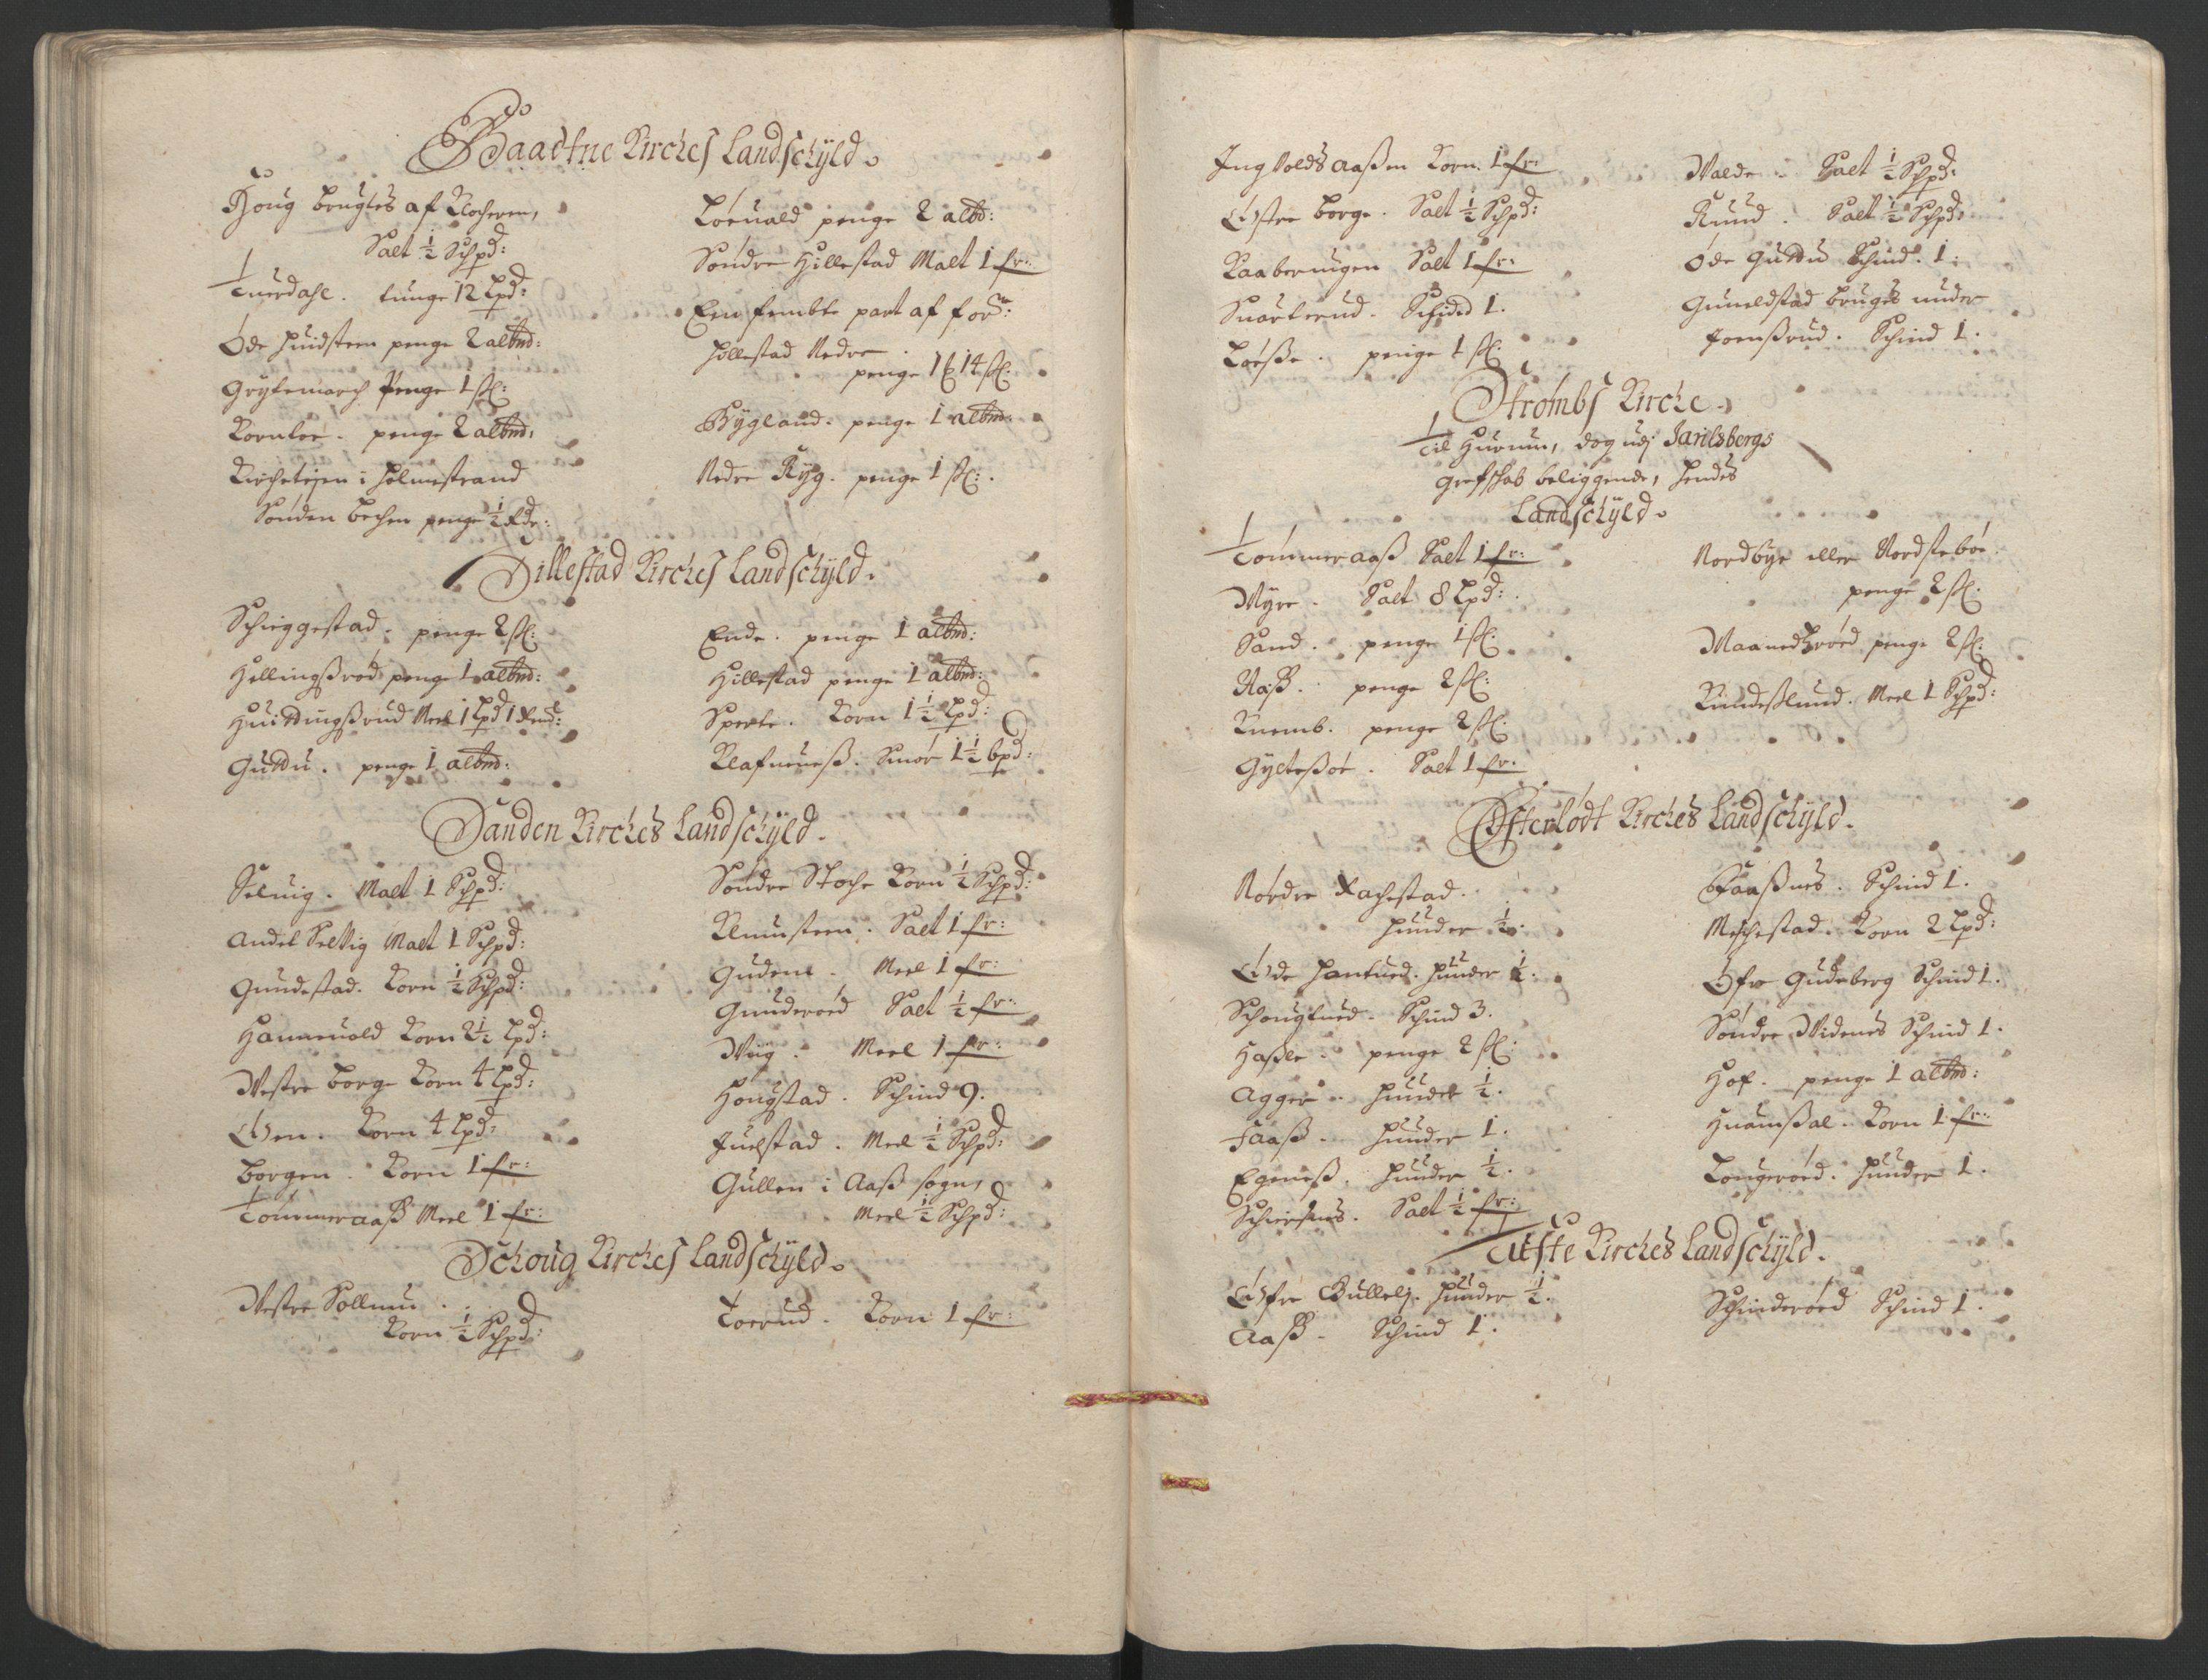 Baadtne Kirches Landschÿld.
Houg brugtes af Klocheren,
Salt ½ Schpd:
Tuerdahl. tunge 12 Lpd:
Øde Huidsteen penge 2 albnd:
Grytemarch Penge 1 sk:
Kornløe. penge 2 albnd:
Kirchetejen i Holmestrand
Sønden bechen penge ½ Rdr:
Løeuald penge 2 albd:
Søndre Hillestad Malt 1 fr:
Een fembte part af forne:
Hillestad Nedre.
penge 1 ß 14 sk:
Bÿgland. penge 1 albnd:
Nedre Rÿg. penge 1 sk:
Hillestad Kirches Landschÿld.
Schieggestad. penge 2 sk:
Hellingßrød penge 1 albnd:
Huittingßrud Meel 1 Lpd 1 Rmd:
Guttu. penge 1 albnd:
Ende. penge 1 albnd:
Hillestad penge 1 albnd:
Sperte. Korn 1½ Lpd:
Klafueneß. Smør 1½ bpd:
Sanden Kirches Landschÿld.
Seluig. Malt 1 Schpd:
Andet Selvig Malt 1 Schpd:
Gundestad. Korn ½ Schpd:
Haneuold Korn 2½ Lpd:
Westre borge Korn 4 Lpd:
Øen. Korn 4 Lpd:
Borgen. Korn 1 fr:
Tømmeraaß Meel 1 fr:
Søndre Stoche Korn ½ Schpd:
Klemusteen. Salt 1 fr:
Gudem. Meel 1 fr:
Gunderød Salt ½ fr:
Wiig. Meel 1 fr:
Hougstad. Schind 9.
Juelstad. Meel ½ Schpd:
Gullen i Aaß sogn,
Meel ½ Schpd:
Schoug Kirches Landschÿld.
Westre Sollum.
Korn ½ Schpd:
Toerud. Korn 1 fr:
Ingvolds aaßen Korn. 1 fr:
Østre borge. Salt ½ Schpd:
Raaberuigen Salt 1 fr:
Suarterud. Schind 1.
Løeße. penge 1 sk:
Walde. Salt ½ Schpd:
Ruud. Salt ½ Schpd:
Øde Guttu Schind. 1:
Guneldstad bruges under
Joenßrud. Schind 1.
Strømbs Kirche.
til Hurum, dog udj Jarilsbergs
Grefschab beliggende, Hendes
Landschÿld.
Tømmeraaß Salt 1 fr:
Myre. Salt 8 Lpd:
Sand. penge 1 sk:
Næß. penge 2 sk:
Knemb. penge 2 sk:
Gylteßøe. Salt 1 fr.
Nordbye eller Nordstebøe.
penge 2 sk.
Maanedßrøed penge 2 sk:
Rindeßlund. Meel 1 Schpd:
Østerlødt Kirches Landschÿld.
Nordre Rachestad.
Huuder ½.
Øde Hantued. Huuder ½.
Schougtued. Schind 3.
Haßle. penge 2 sk:
Agger. Huuder ½.
Faaß. Huuder 1.
Egeneß. Huuder ½.
Schiersnes. Salt ½ fr:
Faaßnes. Schind 1.
Mechestad. Korn 2 Lpd:
Øfre Gudeberg Schind 1.
Søndre Widenes Schind 1.
Hof. penge 1 albnd:
Huamßal. Korn 1 fr:
Longerøed. Huuder 1.
Tufte Kirches Landschÿld.
Øfre Bullelj. Huuder ½.
Aaß. Schind 1.
Schinderøed Schind 1.